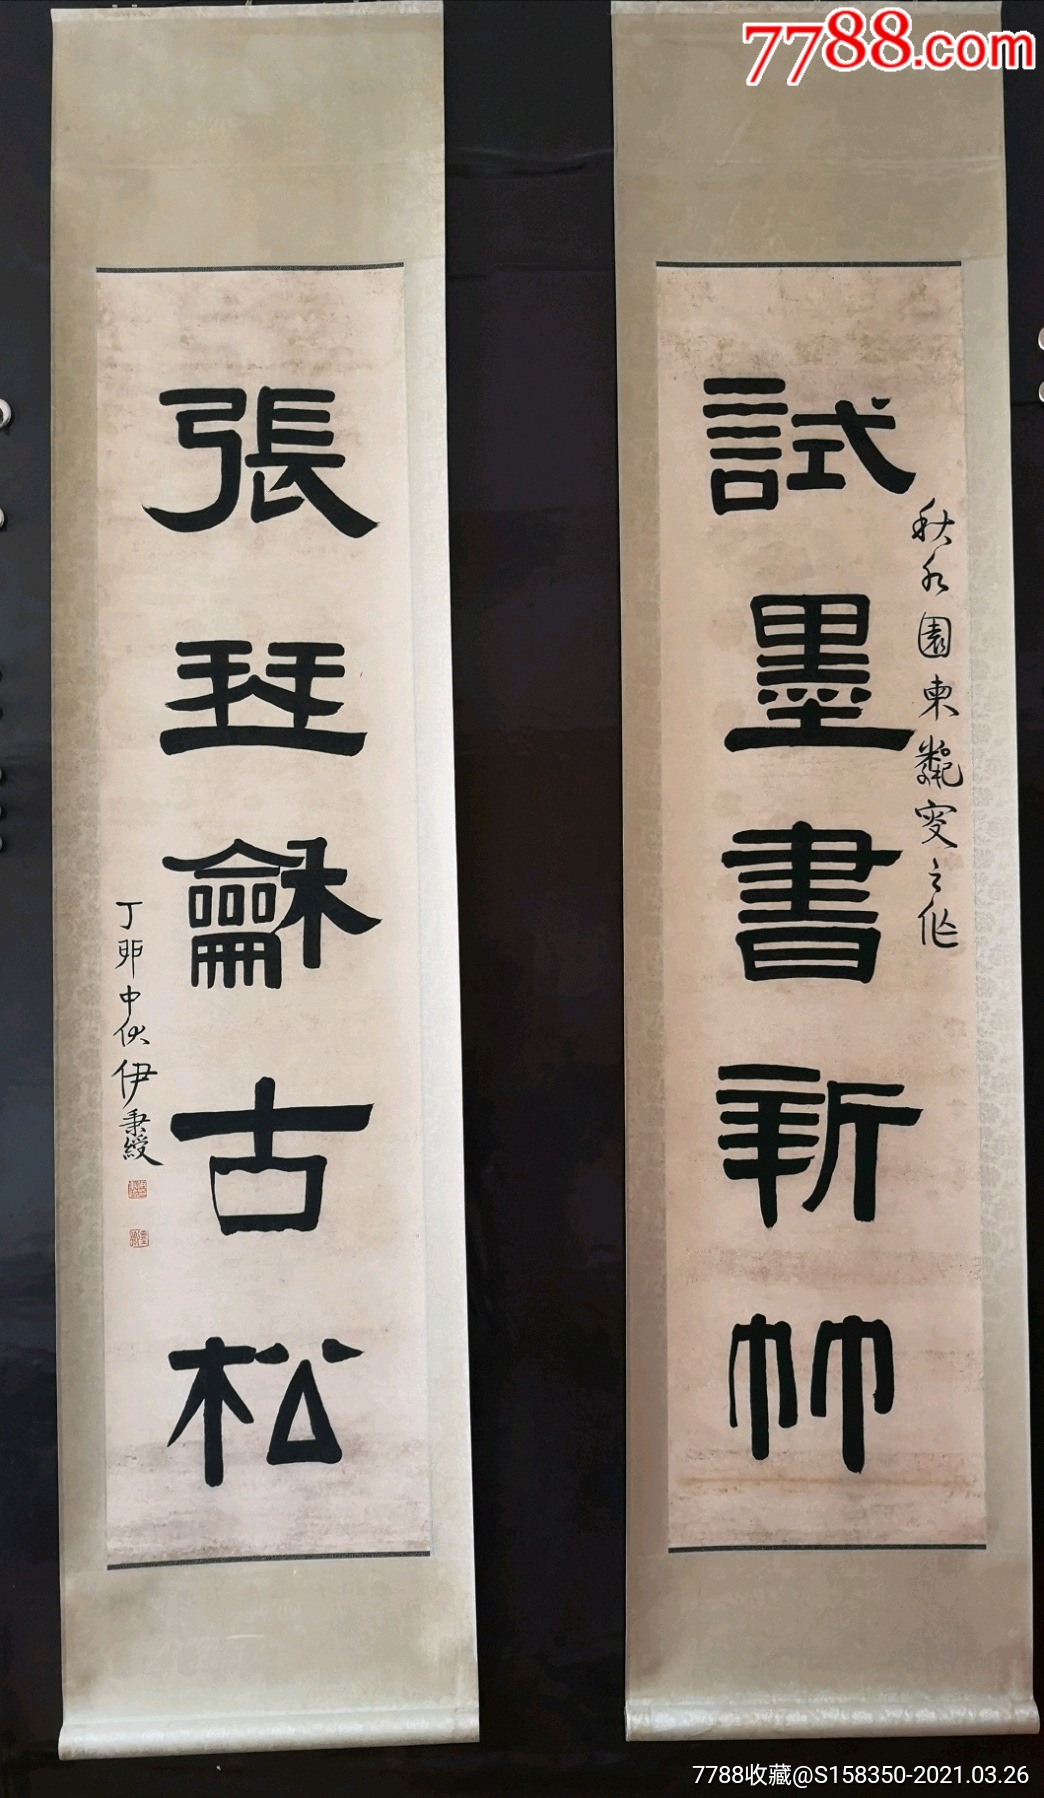 7788.com
試墨書新竹
秋水園東
之作
張琴龢古松
丁卯中伏伊秉綬
7788收藏@S158350-2021.03.26